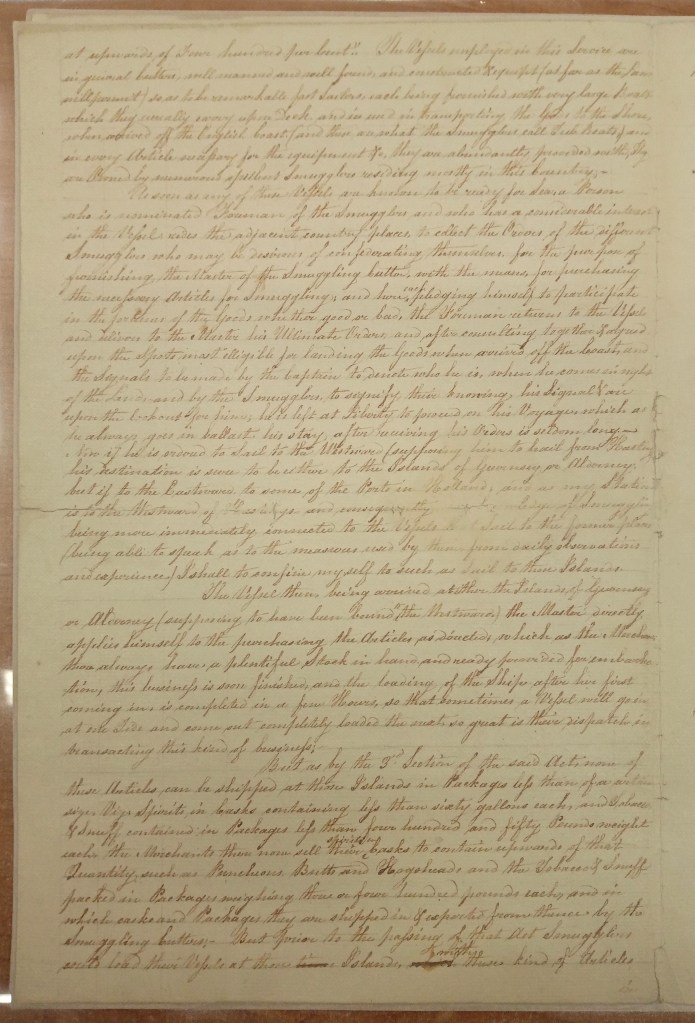 at upwards of Four hundred per Cent. The Vessels employed in this Service are
in general Cutters, well manned and well found, and constructed & equipt (as far as the Law
will permit) so as to be remarkable fast Sailers, each being furnished with very large Boats
which they usually carry upon Deck and in used in transporting the Goods to the Shore
when arrived off the English Coast (and these are what the Smugglers call Tub Boats) and
in every Article necessary for the equipment &c. they are abundantly provided with, They
are Owned by numerous opulent Smugglers residing mostly in this Country.
As soon as any of these Vessels are known to be ready for Sea, a Person
who is nominated Foreman of the Smugglers and who has a considerable interest
in the Vessel rides the adjacent country places, to collect the Orders of the different
Smugglers who may be desirous of confederating themselves, for the purpose of
furnishing the Master of the Smuggling Cutter, with the means, for purchasing
the necessary Articles for Smuggling, and here, each pledging himself to participate
in the produce of the Goods whether good or bad, the Foreman returns to the Vessel
and delivers to the Master his Ultimate Orders, and after consulting together & agreed
upon the Spots most elligible for landing the Goods when arrived off the Coast, and
the Signals to be made by the Captain to denote who he is, when he comes in sight
of the Land, and by the Smugglers, to signify their knowing his Signal & are
upon the Lookout for him, he is left at Liberty to proceed on his Voyage, which as
he always goes in ballast his stay, after receiving his Orders is seldom long
Now if he is ordered to Sail to the Westward (supposing him to hail from Hastings)
his destination is sure to be either to the Islands of Guernsey or Alderney,
but if to the Eastward to some of the Ports in Holland, and as my Station
is to the Westward of Hastings and
being more immediately connected to the Vessels that Sail to the former place
(being able to speak as to the measures used by them from daily observations
and experience) I shall to confine myself to such as Sail to these Islands.
The Vessel then being arrived at either the Islands of Guernsey
or Alderney (supposing to have been bound to the Westward) the Master directly
applies himself to the purchasing the Articles as directed, which as the Merchants
there always have a plentiful Stock in hand and ready prepared for embarka-
tion, this business is soon finished, and the loading of the Ship after her first
coming in, is completed in a few Hours, so that sometimes a Vessel will go in
at one Tide and come out completely loaded the next, so great is their dispatch in
transacting this kind of business;
But as by the 3rd Section of the said Act none of
these Articles can be shipped at those Islands in Packages less than of a certain
size, Viz. Spirits in Casks containing less than sixty gallons each, and Tobacco
& Snuff contained in Packages less than four hundred and fifty Pounds weight
each, the Merchants there now sell their spirits in Casks to contain upwards of that
Quantity, such as Puncheons Butts and Hogsheads and the Tobacco & Snuff
packed in Packages weighing three or four hundred pounds each, and in
which casks and Packages they are shipped in & exported from thence by the
Smuggling Cutters;- But prior to the passing of that Act Smugglers
could load their Vessels at these Islands, with these kind of Articles